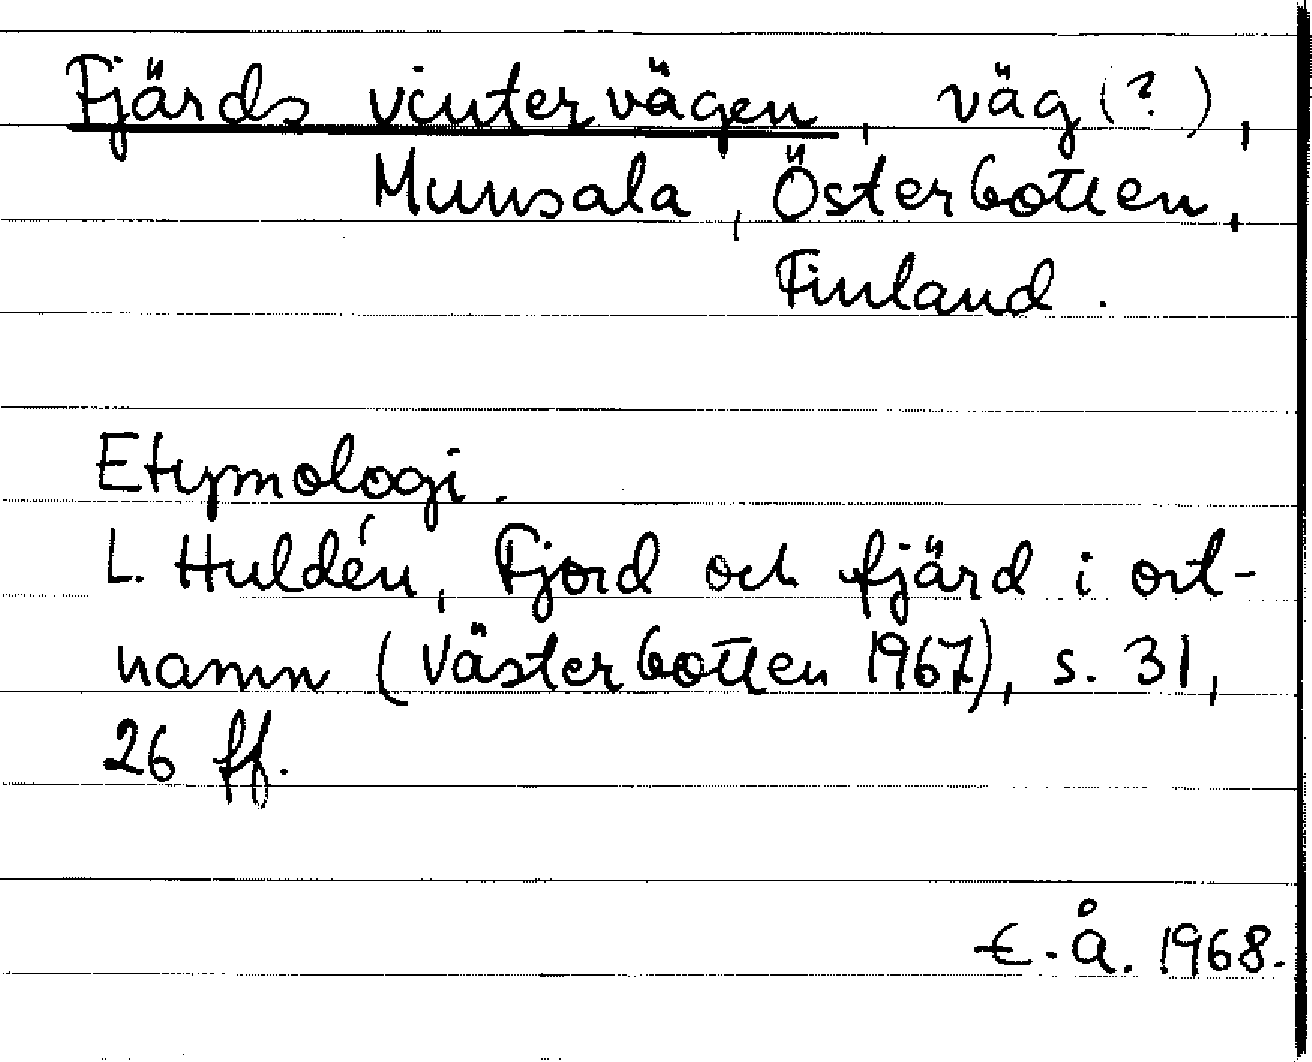 Fjärds vintervägen, väg (?),
Munsala, Österbotten,
Finland.
Etymologi.
L. Huldén, Fjord och fjärd i ort-
namn (Västerbotten 1967), s. 31,
26 ff.
E. Å. 1968.